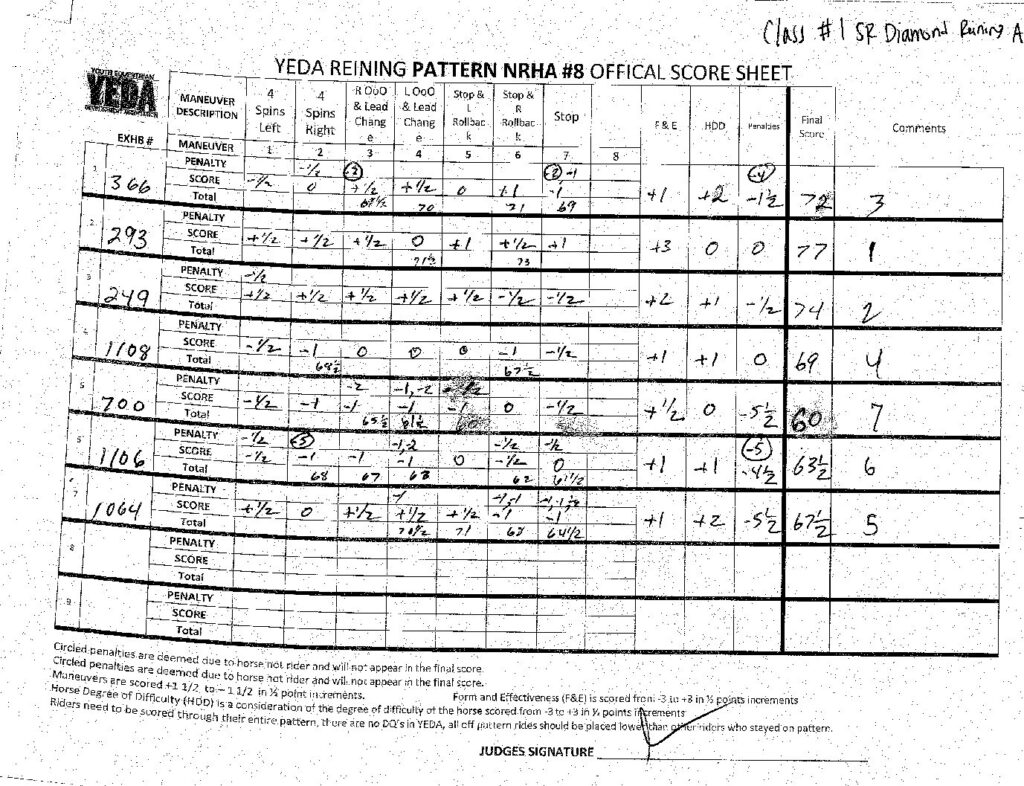 Class #1 SR Diamond Reining A
YEDA REINING PATTERN NRHA #8 OFFICAL SCORE SHEET
YEDA
MANEUVER DESCRIPTION 4 Spins Left 4 Spins Right R OoO & Lead Chang e L OoO & Lead Chang e Stop & L Rollbac k Stop & R Rollbac k Stop F & E HDD Penalties Final Score Comments
EXHB # MANEUVER 1 2 3 4 5 6 7 8
1 366 PENALTY -1/2 -2 -2 -1 -4
SCORE -1/2 0 +1/2 +1/2 0 +1 -1 +1 +2 -1 1/2 72 3
Total 69 1/2 70 71 69
2 293 PENALTY
SCORE +1/2 +1/2 +1/2 0 +1 +1/2 +1 +3 0 0 77 1
Total 71 1/2 73
3 249 PENALTY -1/2
SCORE +1/2 +1/2 +1/2 +1/2 +1/2 -1/2 -1/2 +2 +1 -1/2 74 2
Total
4 1108 PENALTY
SCORE -1/2 -1 0 0 0 -1 -1/2 +1 +1 0 69 4
Total 68 1/2 67 1/2
5 700 PENALTY -2 -1,-2
SCORE -1/2 -1 -1 -1 -1 0 -1/2 +1/2 0 -5 1/2 60 7
Total 65 1/2 61 1/2 60
6 1106 PENALTY -1/2 -5 -1,2 -1/2 -1/2 -5
SCORE -1/2 -1 -1 -1 0 -1/2 0 +1 +1 -4 1/2 63 1/2 6
Total 68 67 63 62 61 1/2
7 1064 PENALTY -1 -1,-1
SCORE +1/2 0 +1/2 +1/2 +1/2 -1 -1 +1 +2 -5 1/2 67 1/2 5
Total 70 1/2 71 68 64 1/2
8 PENALTY
SCORE
Total
9 PENALTY
SCORE
Total
Circled penalties are deemed due to horse not rider and will not appear in the final score.
Circled penalties are deemed due to horse not rider and will not appear in the final score.
Maneuvers are scored +1 1/2 to - 1 1/2 in ½ point increments. Form and Effectiveness (F&E) is scored from -3 to +3 in ½ points increments
Horse Degree of Difficulty (HDD) is a consideration of the degree of difficulty of the horse scored from -3 to +3 in ½ points increments
Riders need to be scored through their entire pattern, there are no DQ's in YEDA, all off pattern rides should be placed lower than other riders who stayed on pattern.
JUDGES SIGNATURE